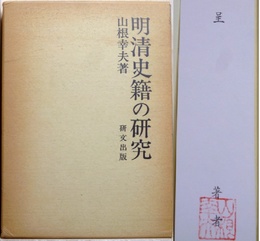 明清史籍の研究
山根幸夫著
研文出版
呈
著者